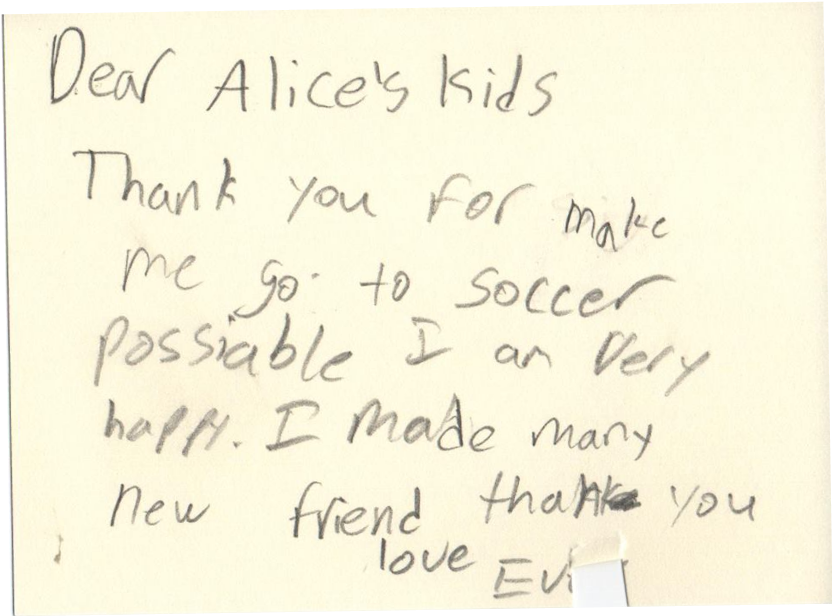 Dear Alice's kids
Thank you for make
me go to soccer
possiable I am very
happy. I made many
new friend thank you
love